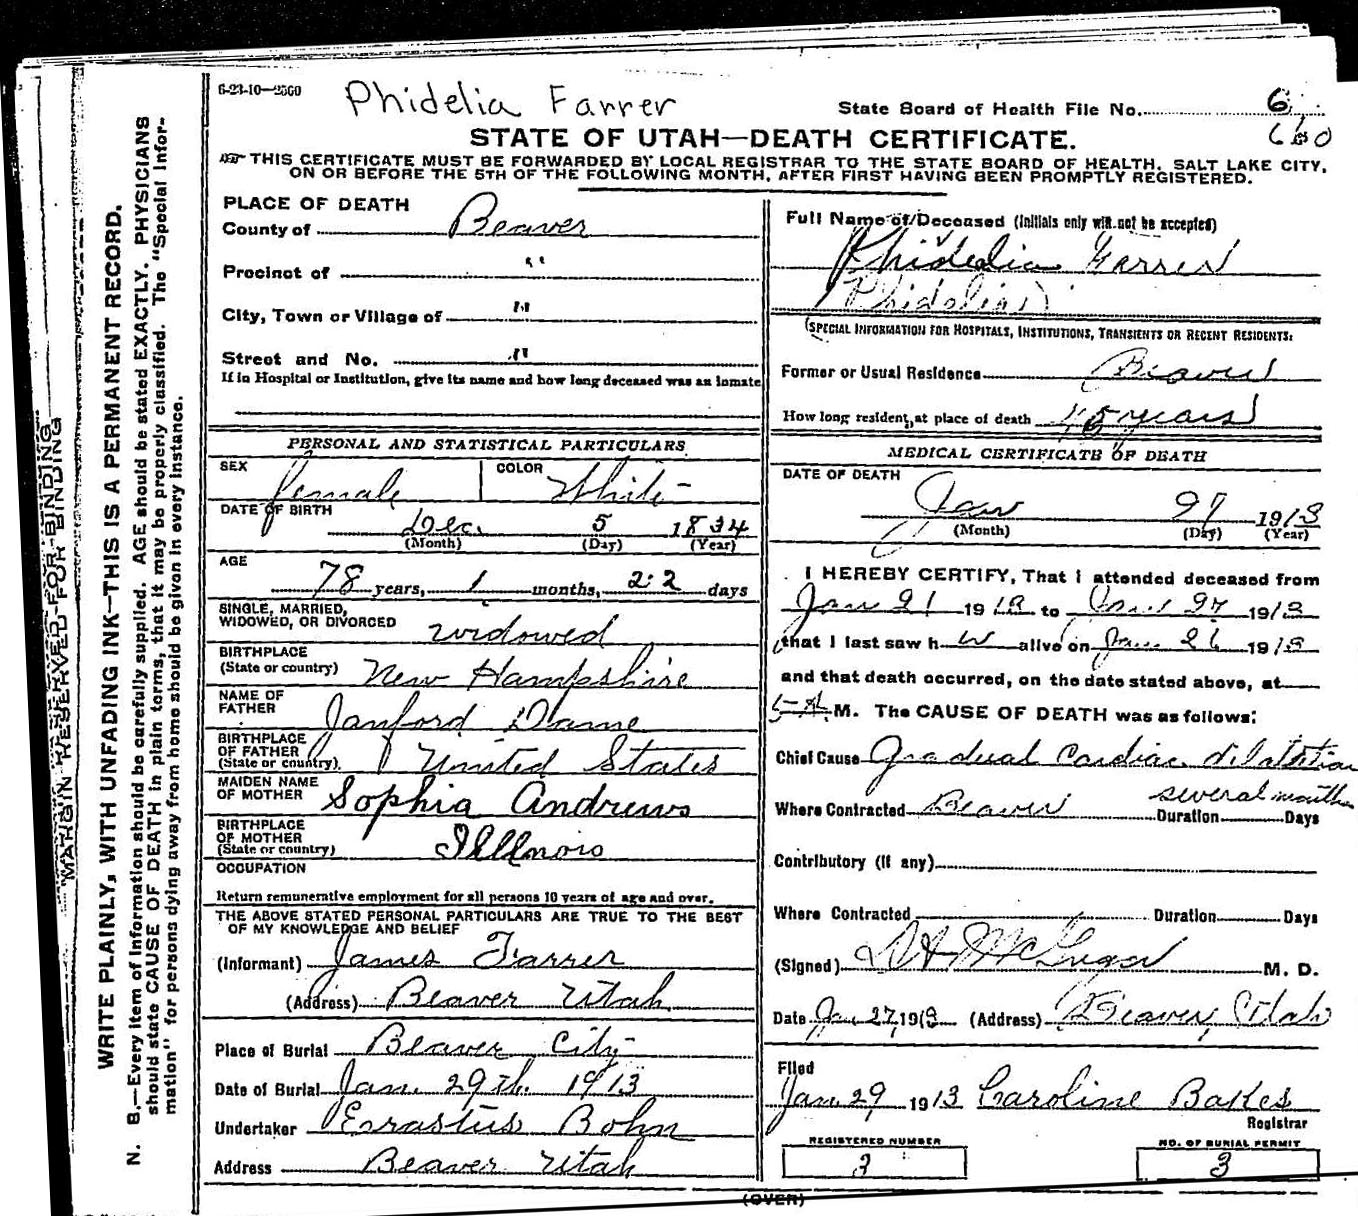 6-23-10—2500
Phidelia Farrer
State Board of Health File No. 6
660
STATE OF UTAH—DEATH CERTIFICATE.
THIS CERTIFICATE MUST BE FORWARDED BY LOCAL REGISTRAR TO THE STATE BOARD OF HEALTH, SALT LAKE CITY,
ON OR BEFORE THE 5TH OF THE FOLLOWING MONTH, AFTER FIRST HAVING BEEN PROMPTLY REGISTERED.
MARGIN RESERVED FOR BINDING
WRITE PLAINLY, WITH UNFADING INK—THIS IS A PERMANENT RECORD.
N. B.—Every item of information should be carefully supplied. AGE should be stated EXACTLY. PHYSICIANS
should state CAUSE OF DEATH in plain terms, that it may be properly classified. The "Special Infor-
mation" for persons dying away from home should be given in every instance.
PLACE OF DEATH
County of Beaver
Precinct of "
City, Town or Village of "
Street and No. "
If in Hospital or Institution, give its name and how long deceased was an inmate
PERSONAL AND STATISTICAL PARTICULARS
SEX female COLOR White
DATE OF BIRTH Dec. 5 1834
(Month) (Day) (Year)
AGE 78 years, 1 months, 22 days
SINGLE, MARRIED,
WIDOWED, OR DIVORCED widowed
BIRTHPLACE
(State or country) New Hampshire
NAME OF
FATHER Janford Dame
BIRTHPLACE
OF FATHER
(State or country) United States
MAIDEN NAME
OF MOTHER Sophia Andrews
BIRTHPLACE
OF MOTHER
(State or country) Illinois
OCCUPATION
Return remunerative employment for all persons 10 years of age and over.
THE ABOVE STATED PERSONAL PARTICULARS ARE TRUE TO THE BEST
OF MY KNOWLEDGE AND BELIEF
(Informant) James Farrer
(Address) Beaver Utah
Place of Burial Beaver City
Date of Burial Jan. 29th. 1913
Undertaker Errastus Bohn
Address Beaver Utah
Full Name of Deceased (Initials only will not be accepted)
Phidelia Farrer
(Phidelia)
(SPECIAL INFORMATION FOR HOSPITALS, INSTITUTIONS, TRANSIENTS OR RECENT RESIDENTS:
Former or Usual Residence Beaver
How long resident, at place of death 45 years
MEDICAL CERTIFICATE OF DEATH
DATE OF DEATH
Jan 27 1913
(Month) (Day) (Year)
I HEREBY CERTIFY, That I attended deceased from
Jan 21 1913 to Jan 27 1913
that I last saw h er alive on Jan 26 1913
and that death occurred, on the date stated above, at
5 A. M. The CAUSE OF DEATH was as follows:
Chief Cause Gradual Cardiac dilatation
Where Contracted Beaver Duration several months Days
Contributory (if any)
Where Contracted Duration Days
(Signed) M. D.
Date Jan 27, 1913 (Address) Beaver, Utah
Filed
Jan 29 1913 Caroline Bakes
Registrar
REGISTERED NUMBER
3
NO. OF BURIAL PERMIT
3
(OVER)